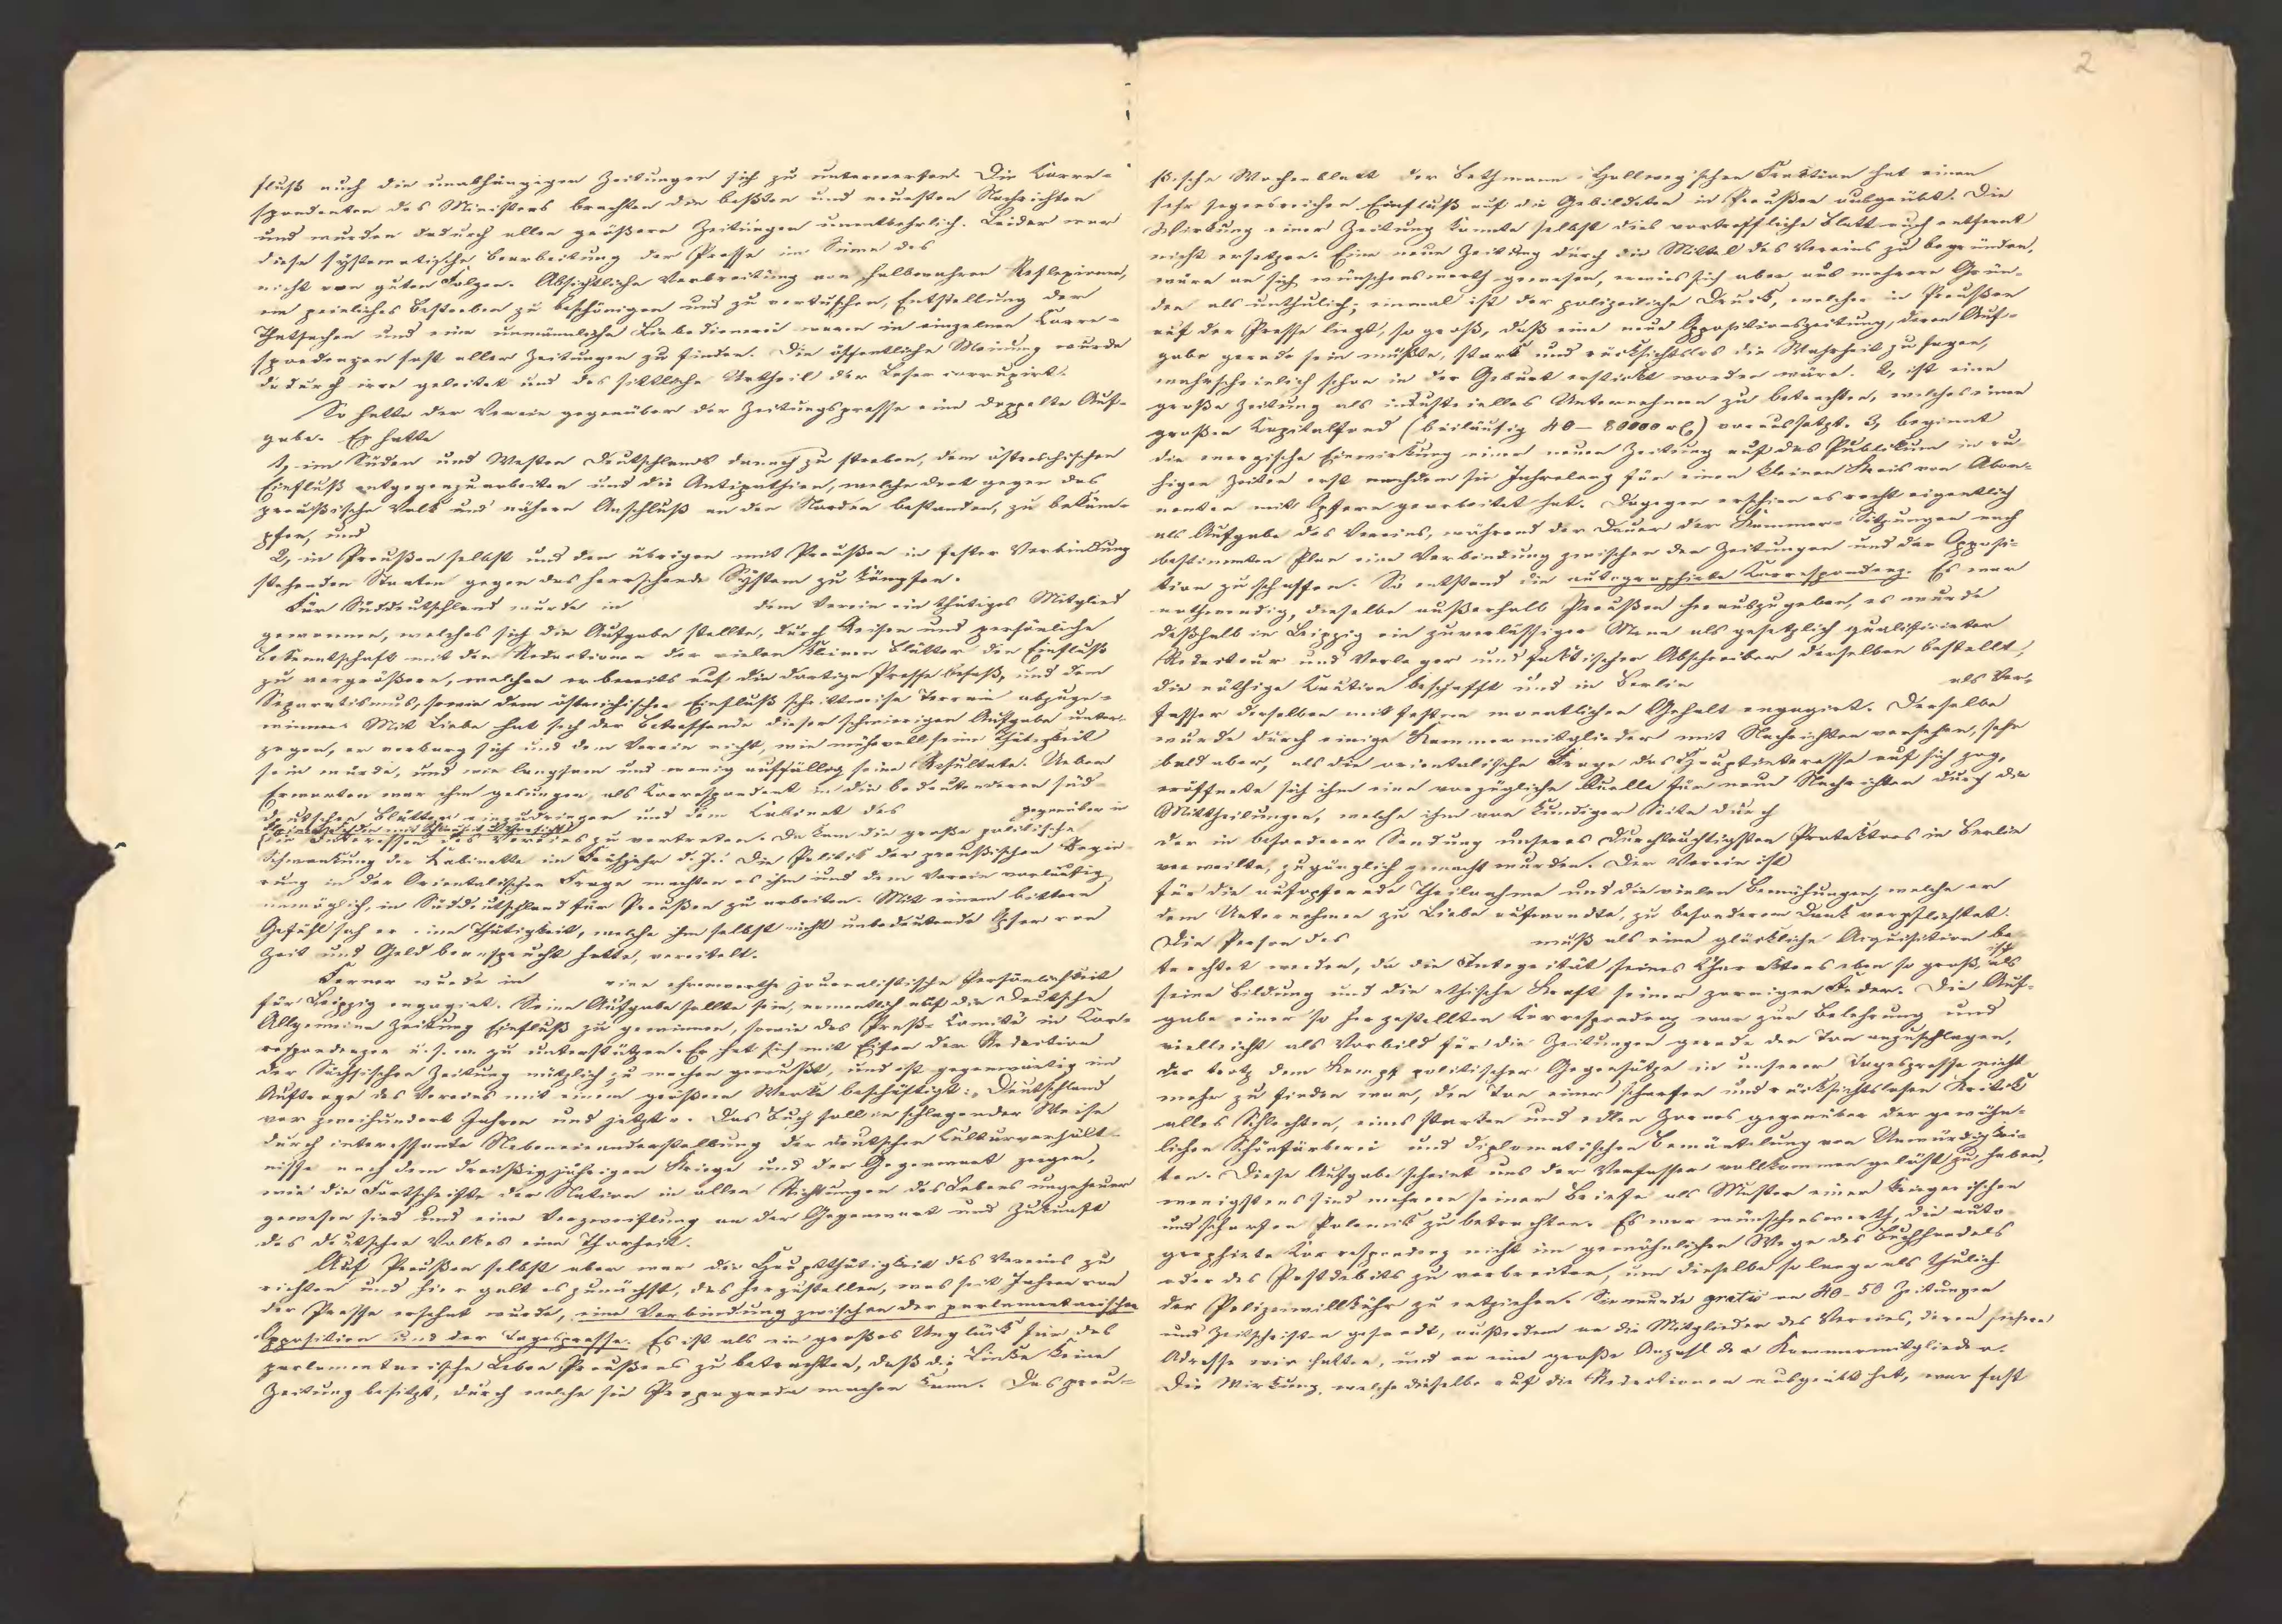 fluß auch die unabhängigen Zeitungen sich zu unterwerfen. Die Corre-
spondenten des Ministers brachten die beßten und neuesten Nachrichten
und wurden dadurch allen größern Zeitungen unentbehrlich. Leider war
diese systematische Bearbeitung der Presse im Sinne des
nicht von guten Folgen. Absichtliche Verbreitung von halbwahren Reflexionen,
ein peinliches Bestreben zu beschönigen und zu vertuschen, Entstellung der
Thatsachen und eine unmännliche Liebedienerei waren in einzelnen Corre-
spondenzen fast aller Zeitungen zu finden. Die öffentliche Meinung wurde
dadurch irre geleitet und das sittliche Urtheil der Leser corrupirt.
So hatte der Verein gegenüber der Zeitungspresse eine doppelte Auf-
gabe. Er hatte
1, im Süden und Westen Deutschlands danach zu streben, dem östreichischen
Einfluß entgegenzuarbeiten und die Antipathien, welche dort gegen das
preußische Volk und nähern Anschluß an den Norden bestanden, zu bekäm-
pfen, und
2, in Preußen selbst und den übrigen mit Preußen in fester Verbindung
stehenden Staaten gegen das herrschende System zu kämpfen.
Für Süddeutschland wurde in dem Verein ein thätiges Mitglied
gewonnen, welches sich die Aufgabe stellte, durch Reisen und persönliche
Bekanntschaft mit den Redactionen der vielen kleinen Blätter den Einfluß
zu vergrößern, welchen er bereits auf die dortige Presse besaß, und dem
Separatismus, sowie dem östreichischen Einfluß schrittweise Terrain abzuge-
winnen. Mit Liebe hat sich der Betreffende dieser schwierigen Aufgabe unter-
zogen, er verbarg sich und dem Verein nicht, wie mühevoll seine Thätigkeit
sein würde, und wie langsam und wenig auffällig seine Resultate. Ueber
Erwarten war ihm gelungen, als Correspondent in die bedeutenderen süd-
deutschen Blätter einzudringen und dem Cabinet des gegenüber in
die Interessen des Vereines zu vertreten. Da kam die große politische
Schwankung der Kabinette im Frühjahr d. J. Die Politik der preußischen Regie-
rung in der Orientalischen Frage machten es ihm und dem Verein vorläufig
unmöglich, in Süddeutschland für Preußen zu arbeiten. Mit einem bittern
Gefühl sah er eine Thätigkeit, welche ihm selbst nicht unbedeutende Opfer von
Zeit und Geld beansprucht hatte, vereitelt.
Ferner wurde in eine ehrenwerthe journalistische Persönlichkeit
für Leipzig engagirt. Seine Aufgabe sollte sein, namentlich auf die Deutsche
Allgemeine Zeitung Einfluß zu gewinnen, sowie das Preß-Comité in Cor-
respondenzen u. s. w. zu unterstützen. Er hat sich mit Eifer der Redaction
der Sächsischen Zeitung nützlich zu machen gewußt, und ist gegenwärtig im
Auftrage des Vereines mit einem größern Werke beschäftigt: „Deutschland
vor zweihundert Jahren und jetzt“. Das Buch soll in schlagender Weise
durch interessante Nebeneinanderstellung der deutschen Culturverhält-
nisse nach dem dreißigjährigen Kriege und der Gegenwart zeigen,
wie die Fortschritte der Nation in allen Richtungen des Lebens ungeheuer
gewesen sind und eine Verzweiflung an der Gegenwart und Zukunft
des deutschen Volkes eine Thorheit.
Auf Preußen selbst aber war die Hauptthätigkeit des Vereins zu
richten und hier galt es zunächst, das herzustellen, was seit Jahren von
der Presse ersehnt wurde, eine Verbindung zwischen der parlamentarischen
Opposition und der Tagespresse. Es ist als ein großes Unglück für das
parlamentarische Leben Preußens zu betrachten, daß die Linke keine
Zeitung besitzt, durch welche sie Propaganda machen kann. Das preu-
2
ßische Wochenblatt der Bethmann-Hollweg'schen Fraktion hat einen
sehr segensreichen Einfluß auf die Gebildeten in Preußen ausgeübt. Die
Wirkung einer Zeitung konnte selbst dies vortreffliche Blatt auch entfernt
nicht ersetzen. Eine neue Zeitung durch die Mittel des Vereins zu begründen,
wäre an sich wünschenswerth gewesen, erwies sich aber aus mehrern Grün-
den als unthulich; einmal ist der polizeiliche Druck, welcher in Preußen
auf der Presse liegt, so groß, daß eine neue Oppositionszeitung, deren Auf-
gabe gerade sein müßte, stark und rücksichtslos die Wahrheit zu sagen,
wahrscheinlich schon in der Geburt erstickt worden wäre. 2, ist eine
große Zeitung als industrielles Unternehmen zu betrachten, welches einen
großen Capitalfond (beiläufig 40–80000 rℓ) voraussetzt. 3, beginnt
die energische Einwirkung einer neuen Zeitung auf das Publikum in ru-
higen Zeiten erst nachdem sie Jahrelang für einen kleinen Kreis von Abon-
nenten mit Opfern gearbeitet hat. Dagegen erschien es recht eigentlich
als Aufgabe des Vereins, während der Dauer der Kammer-Sitzungen nach
bestimmtem Plan eine Verbindung zwischen den Zeitungen und der Opposi-
tion zu schaffen. So entstand die autographirte Correspondenz. Es war
nothwendig, dieselbe außerhalb Preußen herauszugeben, es wurde
deßhalb in Leipzig ein zuverlässiger Mann als gesetzlich qualificirter
Redacteur und Verleger und faktischer Abschreiber derselben bestellt,
die nöthige Caution beschafft und in Berlin als Ver-
fasser derselben mit festem monatlichen Gehalt engagirt. Derselbe
wurde durch einige Kammermitglieder mit Nachrichten versehen, sehr
bald aber, als die orientalische Frage das Hauptinteresse auf sich zog,
eröffnete sich ihm eine vorzügliche Quelle für neue Nachrichten durch die
Mittheilungen, welche ihm von kundiger Seite durch
der in besonderer Sendung unseres Durchlauchtigsten Protektors in Berlin
verweilte, zugänglich gemacht wurden. Der Verein ist
für die aufopfernde Theilnahme und die vielen Bemühungen, welche er
dem Unternehmen zu Liebe aufwandte, zu besonderem Dank verpflichtet.
Die Person des muß als eine glückliche Acquisition be-
trachtet werden, da die Integrität seines Charakters eben so groß ist, als
seine Bildung und die ethische Kraft seiner zornigen Feder. Die Auf-
gabe einer so hergestellten Correspondenz war zur Belehrung und
vielleicht als Vorbild für die Zeitungen gerade den Ton anzuschlagen,
der trotz dem Kampf politischer Gegensätze in unserer Tagespresse nicht
mehr zu finden war, den Ton einer scharfen und rücksichtslosen Kritik
alles Schlechten, eines starken und edlen Zornes gegenüber der gewöhn-
lichen Schönfärberei und diplomatischen Bemäntelung von Unwürdigkei-
ten. Diese Aufgabe scheint uns der Verfasser vollkommen gelöst zu haben,
wenigstens sind mehrere seiner Briefe als Muster einer kriegerischen
und scharfen Polemik zu betrachten. Es war wünschenswerth, die auto-
graphirte Correspondenz nicht im gewöhnlichen Wege des Buchhandels
oder des Postdebits zu verbreiten, um dieselbe so lange als thulich
der Polizeiwillkühr zu entziehen. Sie wurde gratis an 40–50 Zeitungen
und Zeitschriften gesandt, außerdem an die Mitglieder des Vereins, deren sichere
Adresse wir hatten, und an eine große Anzahl der Kammermitglieder.
Die Wirkung, welche dieselbe auf die Redactionen ausgeübt hat, war fast